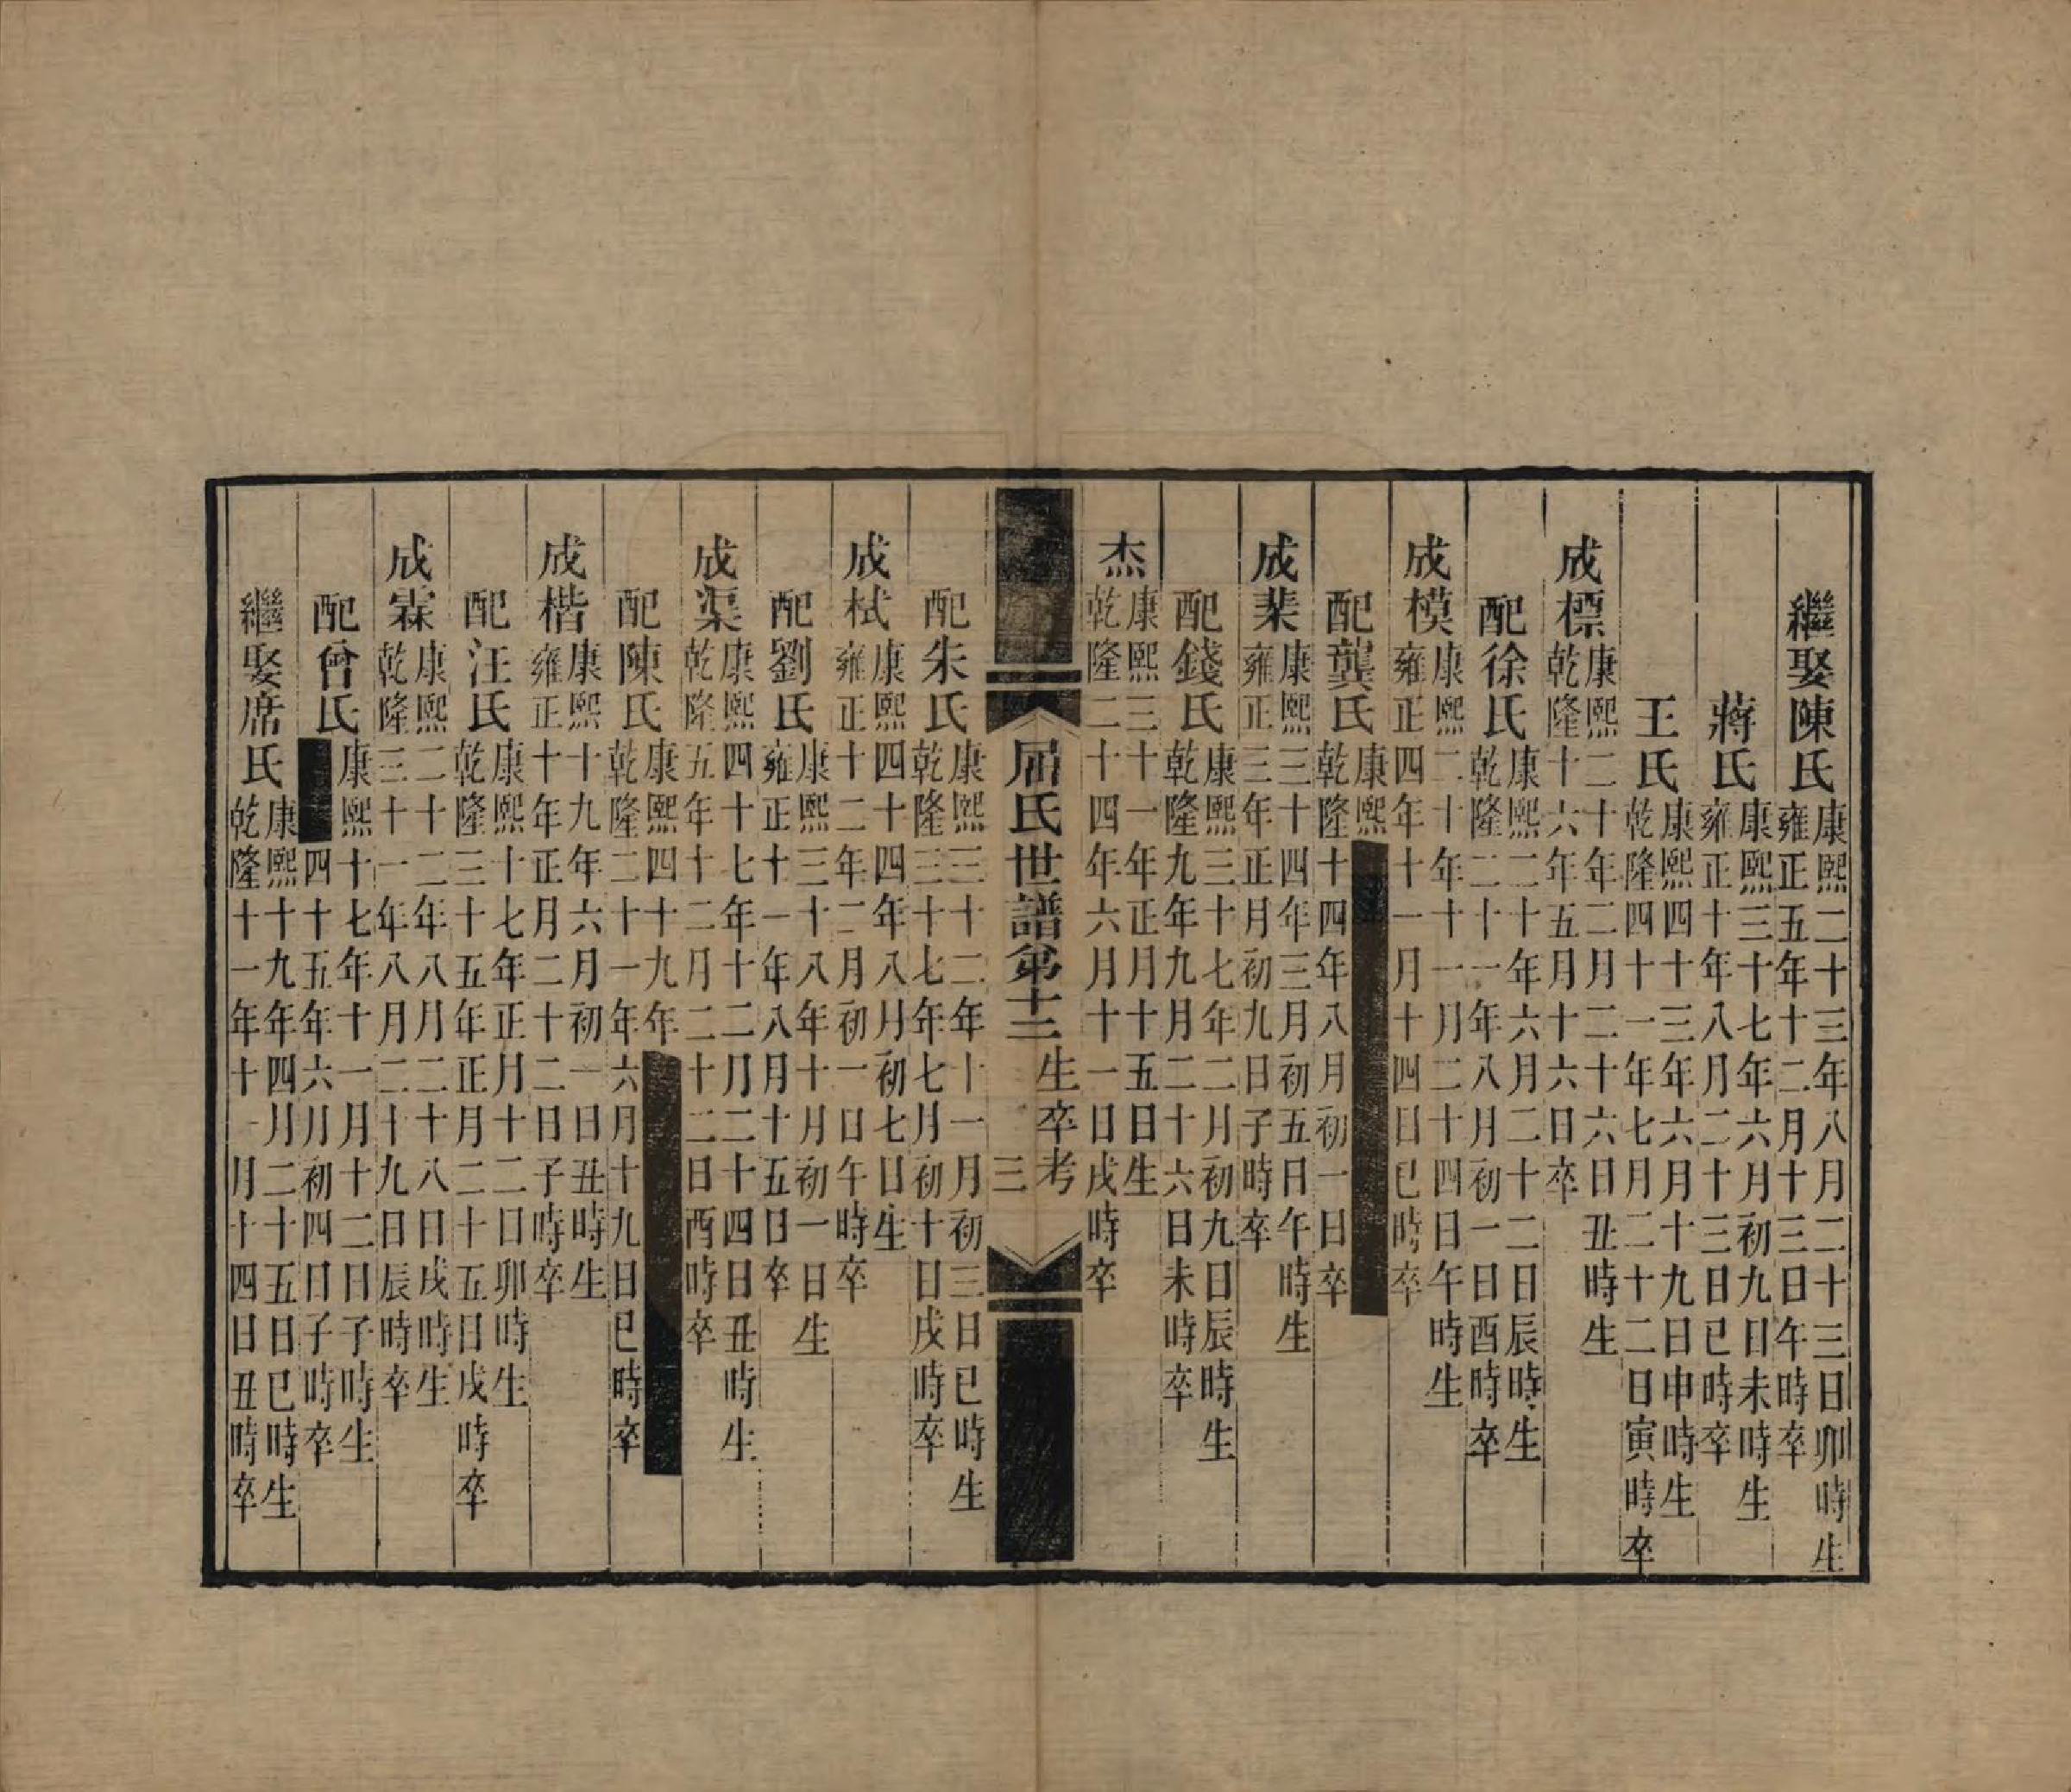 繼娶陳氏康熙二十三年八月二十三日卯時生雍正五年十二月十三日午時卒
蔣氏康熙三十七年六月初九日未時生雍正十年八月二十三日巳時卒
王氏康熙四十三年六月十九日申時生乾隆四十一年七月二十二日寅時卒
成標康熙二十年二月二十六日丑時生乾隆十六年五月十六日卒
配徐氏康熙二十年六月二十二日辰時生乾隆二十一年八月初一日酉時卒
成模康熙二十年十一月二十四日午時生雍正四年十一月十四日巳時卒
配龔氏康熙乾隆十四年八月初一日卒
成棐康熙三十四年三月初五日午時生雍正三年正月初九日子時卒
配錢氏康熙三十七年二月初九日辰時生乾隆九年九月二十六日未時卒
杰康熙三十一年正月十五日生乾隆二十四年六月十一日戌時卒
屈氏世譜弟十三 生卒考 三
配朱氏康熙三十二年十一月初三日巳時生乾隆三十七年七月初十日戌時卒
成栻康熙四十四年八月初七日生雍正十二年二月初一日午時卒
配劉氏康熙三十八年十月初一日生雍正十一年八月十五日卒
成渠康熙四十七年十二月二十四日丑時生乾隆五年十二月二十二日酉時卒
配陳氏康熙四十九年乾隆二十一年六月十九日巳時卒
成楷康熙十九年六月初一日丑時生雍正十年正月二十二日子時卒
配汪氏康熙十七年正月十二日卯時生乾隆三十五年正月二十五日戌時卒
成霖康熙二十二年八月二十八日戌時生乾隆三十一年八月二十九日辰時卒
配曾氏康熙十七年十一月十二日子時生四十五年六月初四日子時卒
繼娶席氏康熙十九年四月二十五日巳時生乾隆十一年十一月十四日丑時卒